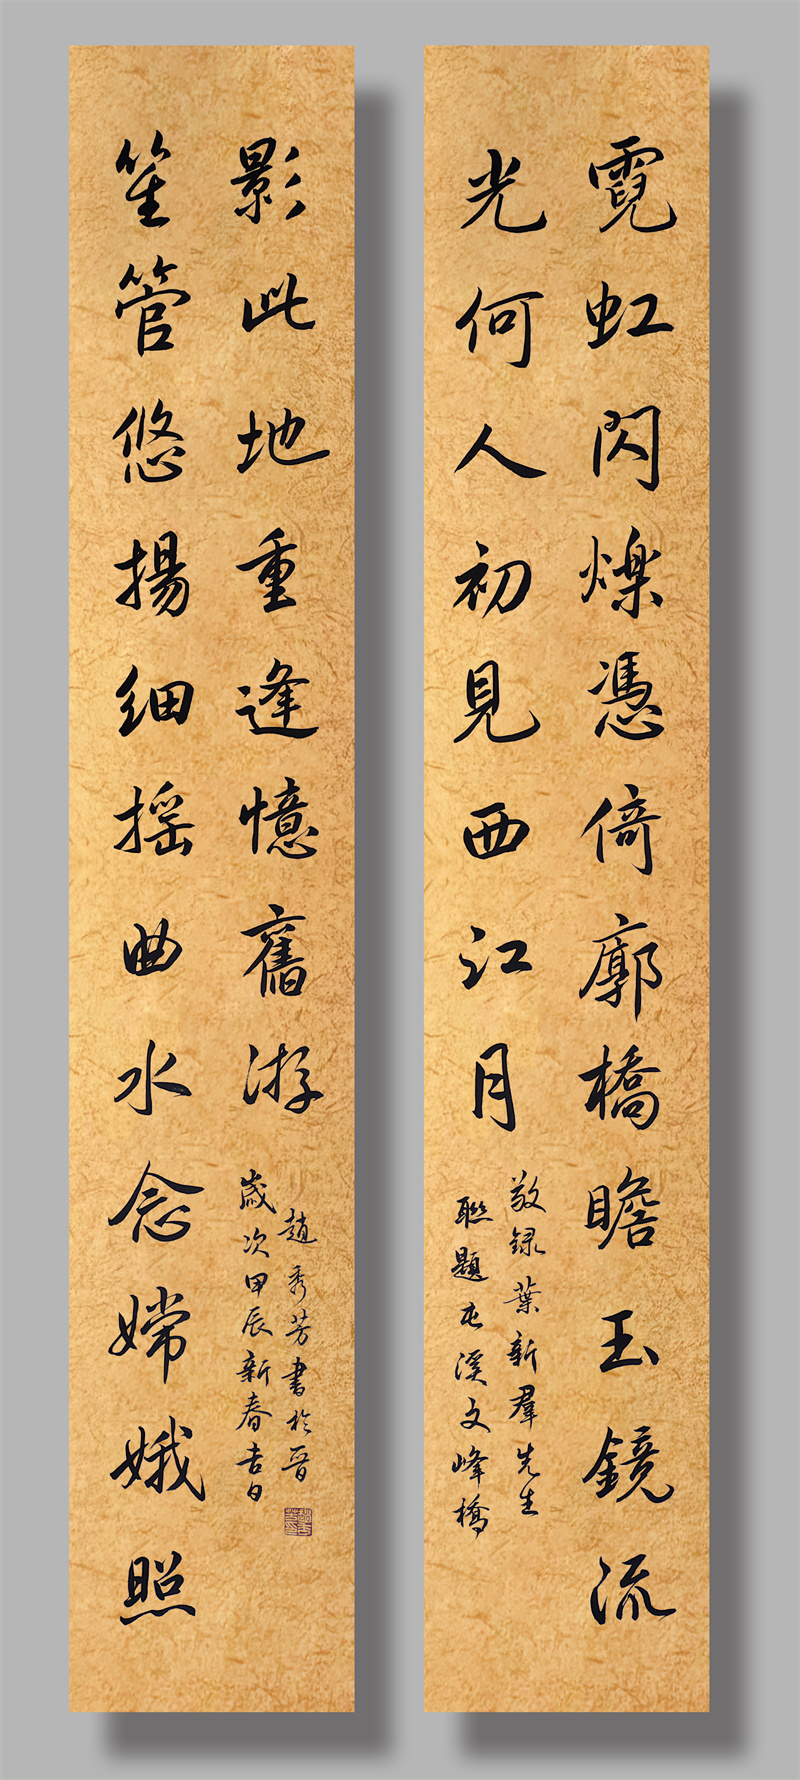 霓虹閃爍憑倚廓橋瞻玉鏡流
光何人初見西江月
敬録葉新羣先生
聯題屯溪文峰橋
笙管悠揚細摇曲水念嫦娥照
影此地重逢憶舊游
歲次甲辰新春吉日
趙秀芳書於晉